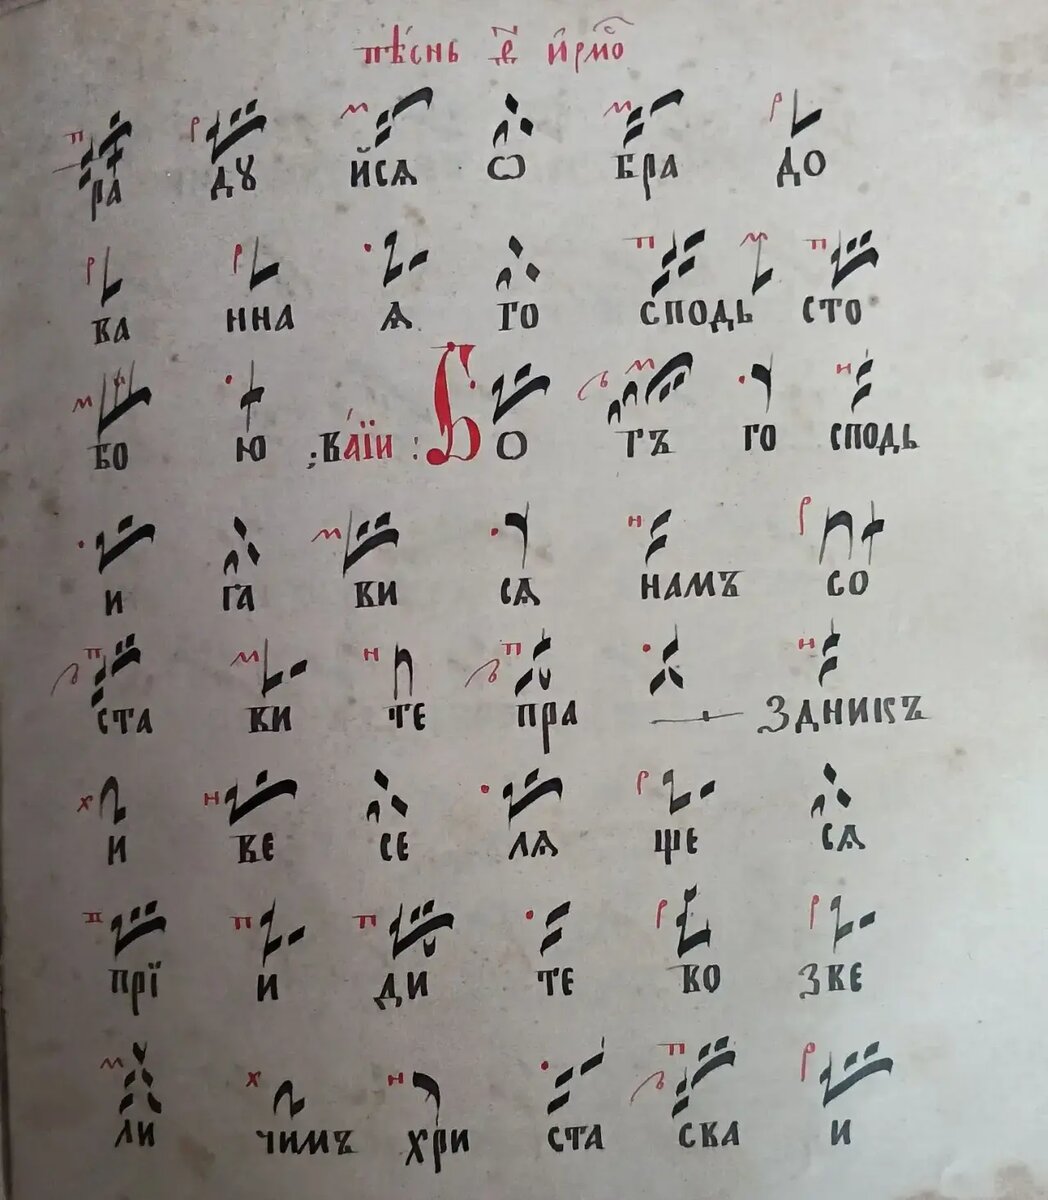 пѣснь ѳ҃ і҆рмо́
ра дꙋ йсѧ ѡ бра до
ва нна ѧ го сподь сто
бо ю ;ва́їи : Бо гъ го сподь
и га ви сѧ намъ со
ста ви те пра здникъ
и ве се лѧ ще сѧ
прї и ди те во зве
ли чимъ хри ста ска и